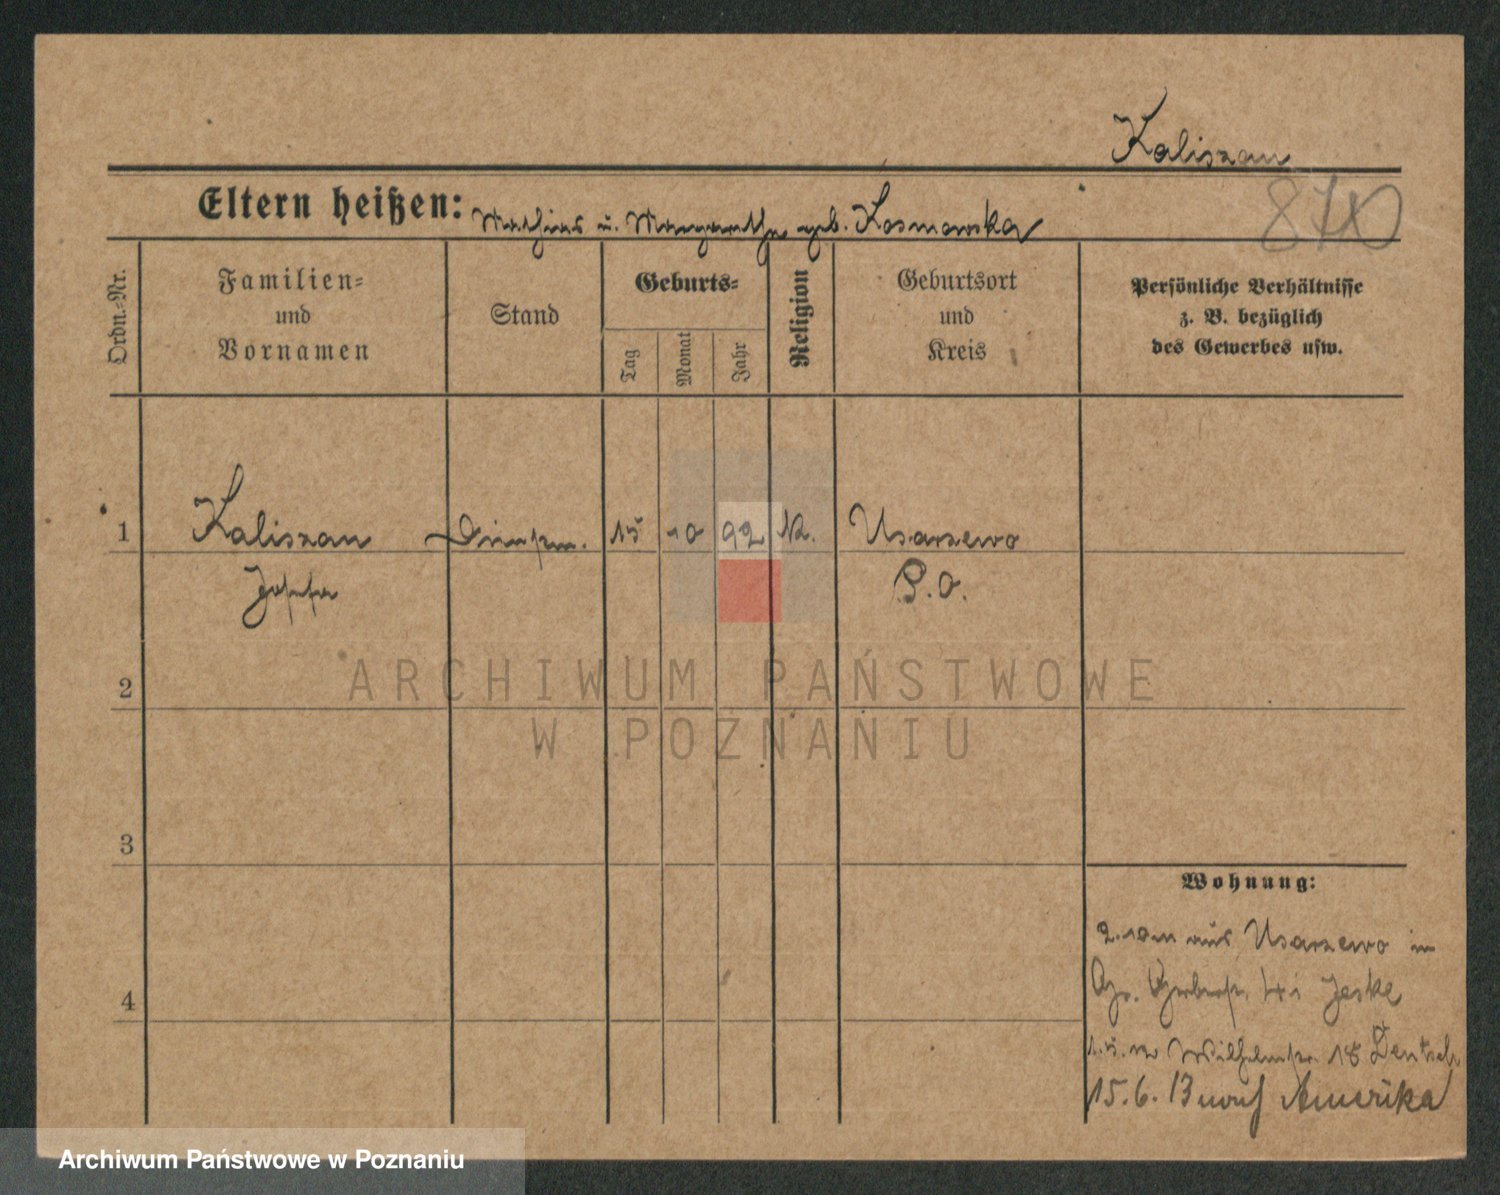 Kaliszan
Eltern heißen: Mathias u. Margarethe geb. Kosmowska
8710
Ordn.-Nr.
Familien-
und
Vornamen
Stand
Geburts-
Tag
Monat
Jahr
Religion
Geburtsort
und
Kreis
Persönliche Verhältnisse
z. B. bezüglich
des Gewerbes usw.
1 Kaliszan Dienstm. 15 10 92 k. Usarzewo
Josefa P.O.
2
ARCHIWUM PAŃSTWOWE
W POZNANIU
3
Wohnung:
2.10.11 aus Usarzewo in
Jeske
4
Wilhelmstr. 18 Deutsch
15.6.13 nach Amerika
Archiwum Państwowe w Poznaniu